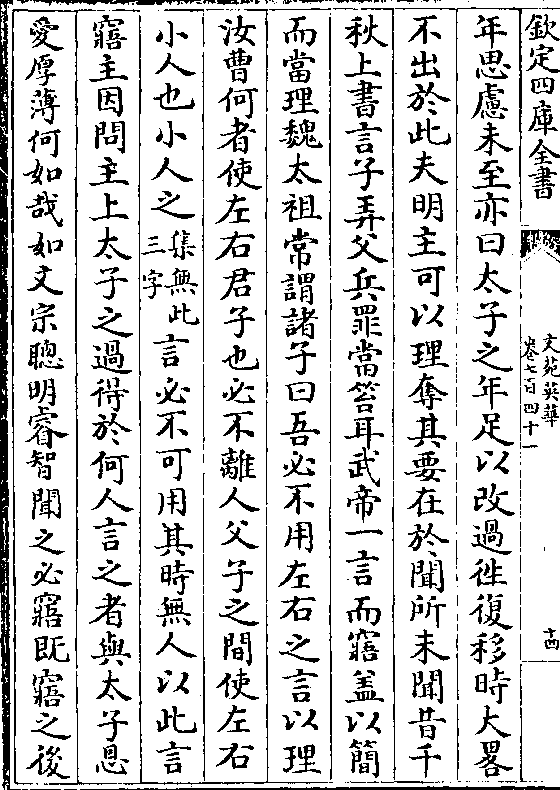 欽定四庫全書
文苑英華
卷七百四十一
十四
年思慮未至亦曰太子之年足以改過徃復移時大畧
不出於此夫明主可以理奪其要在於聞所未聞昔千
秋上書言子弄父兵罪當笞耳武帝一言而寤葢以簡
而當理魏太祖常謂諸子曰吾必不用左右之言以理
汝曹何者使左右君子也必不離人父子之間使左右
小人也小人之集無此三字言必不可用其時無人以此言
寤主因問主上太子之過得於何人言之者與太子恩
愛厚薄何如哉如文宗聰明睿智聞之必寤既寤之後